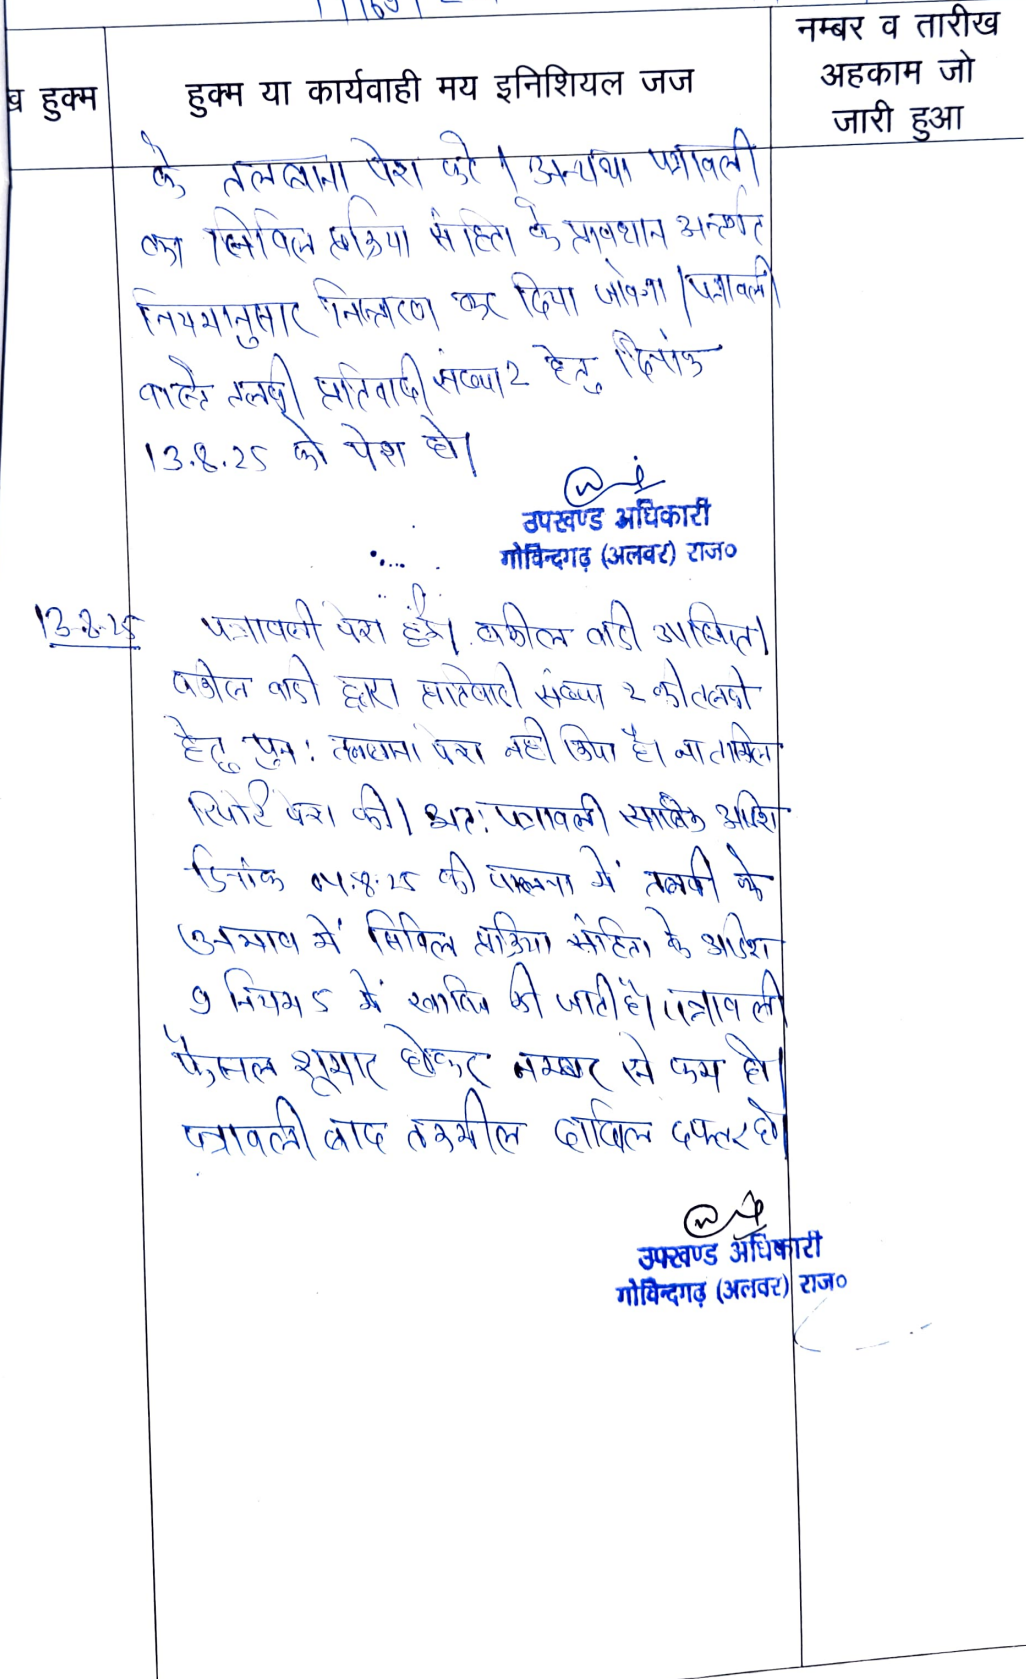 व हुक्म
हुक्म या कार्यवाही मय इनिशियल जज
नम्बर व तारीख
अहकाम जो
जारी हुआ
के तलबाना पेश करे। अन्यथा पत्रावली
का सिविल प्रक्रिया संहिता के प्रावधान अन्तर्गत
नियमानुसार निस्तारण कर दिया जावेगा। पत्रावली
वास्ते तलबी प्रतिवादी संख्या 2 हेतु दिनांक
13.8.25 को पेश हो।
उपखण्ड अधिकारी
गोविन्दगढ़ (अलवर) राज०
13-8-25 पत्रावली पेश हुई। वकील वादी उपस्थित।
वकील वादी द्वारा प्रतिवादी संख्या 2 की तलबी
हेतु पुन: तलबाना पेश नही किया है। ना तामिल
रिपोर्ट पेश की। अत: पत्रावली साबिक आदेश
दिनांक 04.8.25 की पालना में तलबी के
अभाव में सिविल प्रक्रिया संहिता के आदेश
9 नियम 5 में खारिज की जाती है। पत्रावली
फैसल शुमार होकर नम्बर से कम हो।
पत्रावली बाद तकमील दाखिल दफ्तर हो।
उपखण्ड अधिकारी
गोविन्दगढ़ (अलवर) राज०